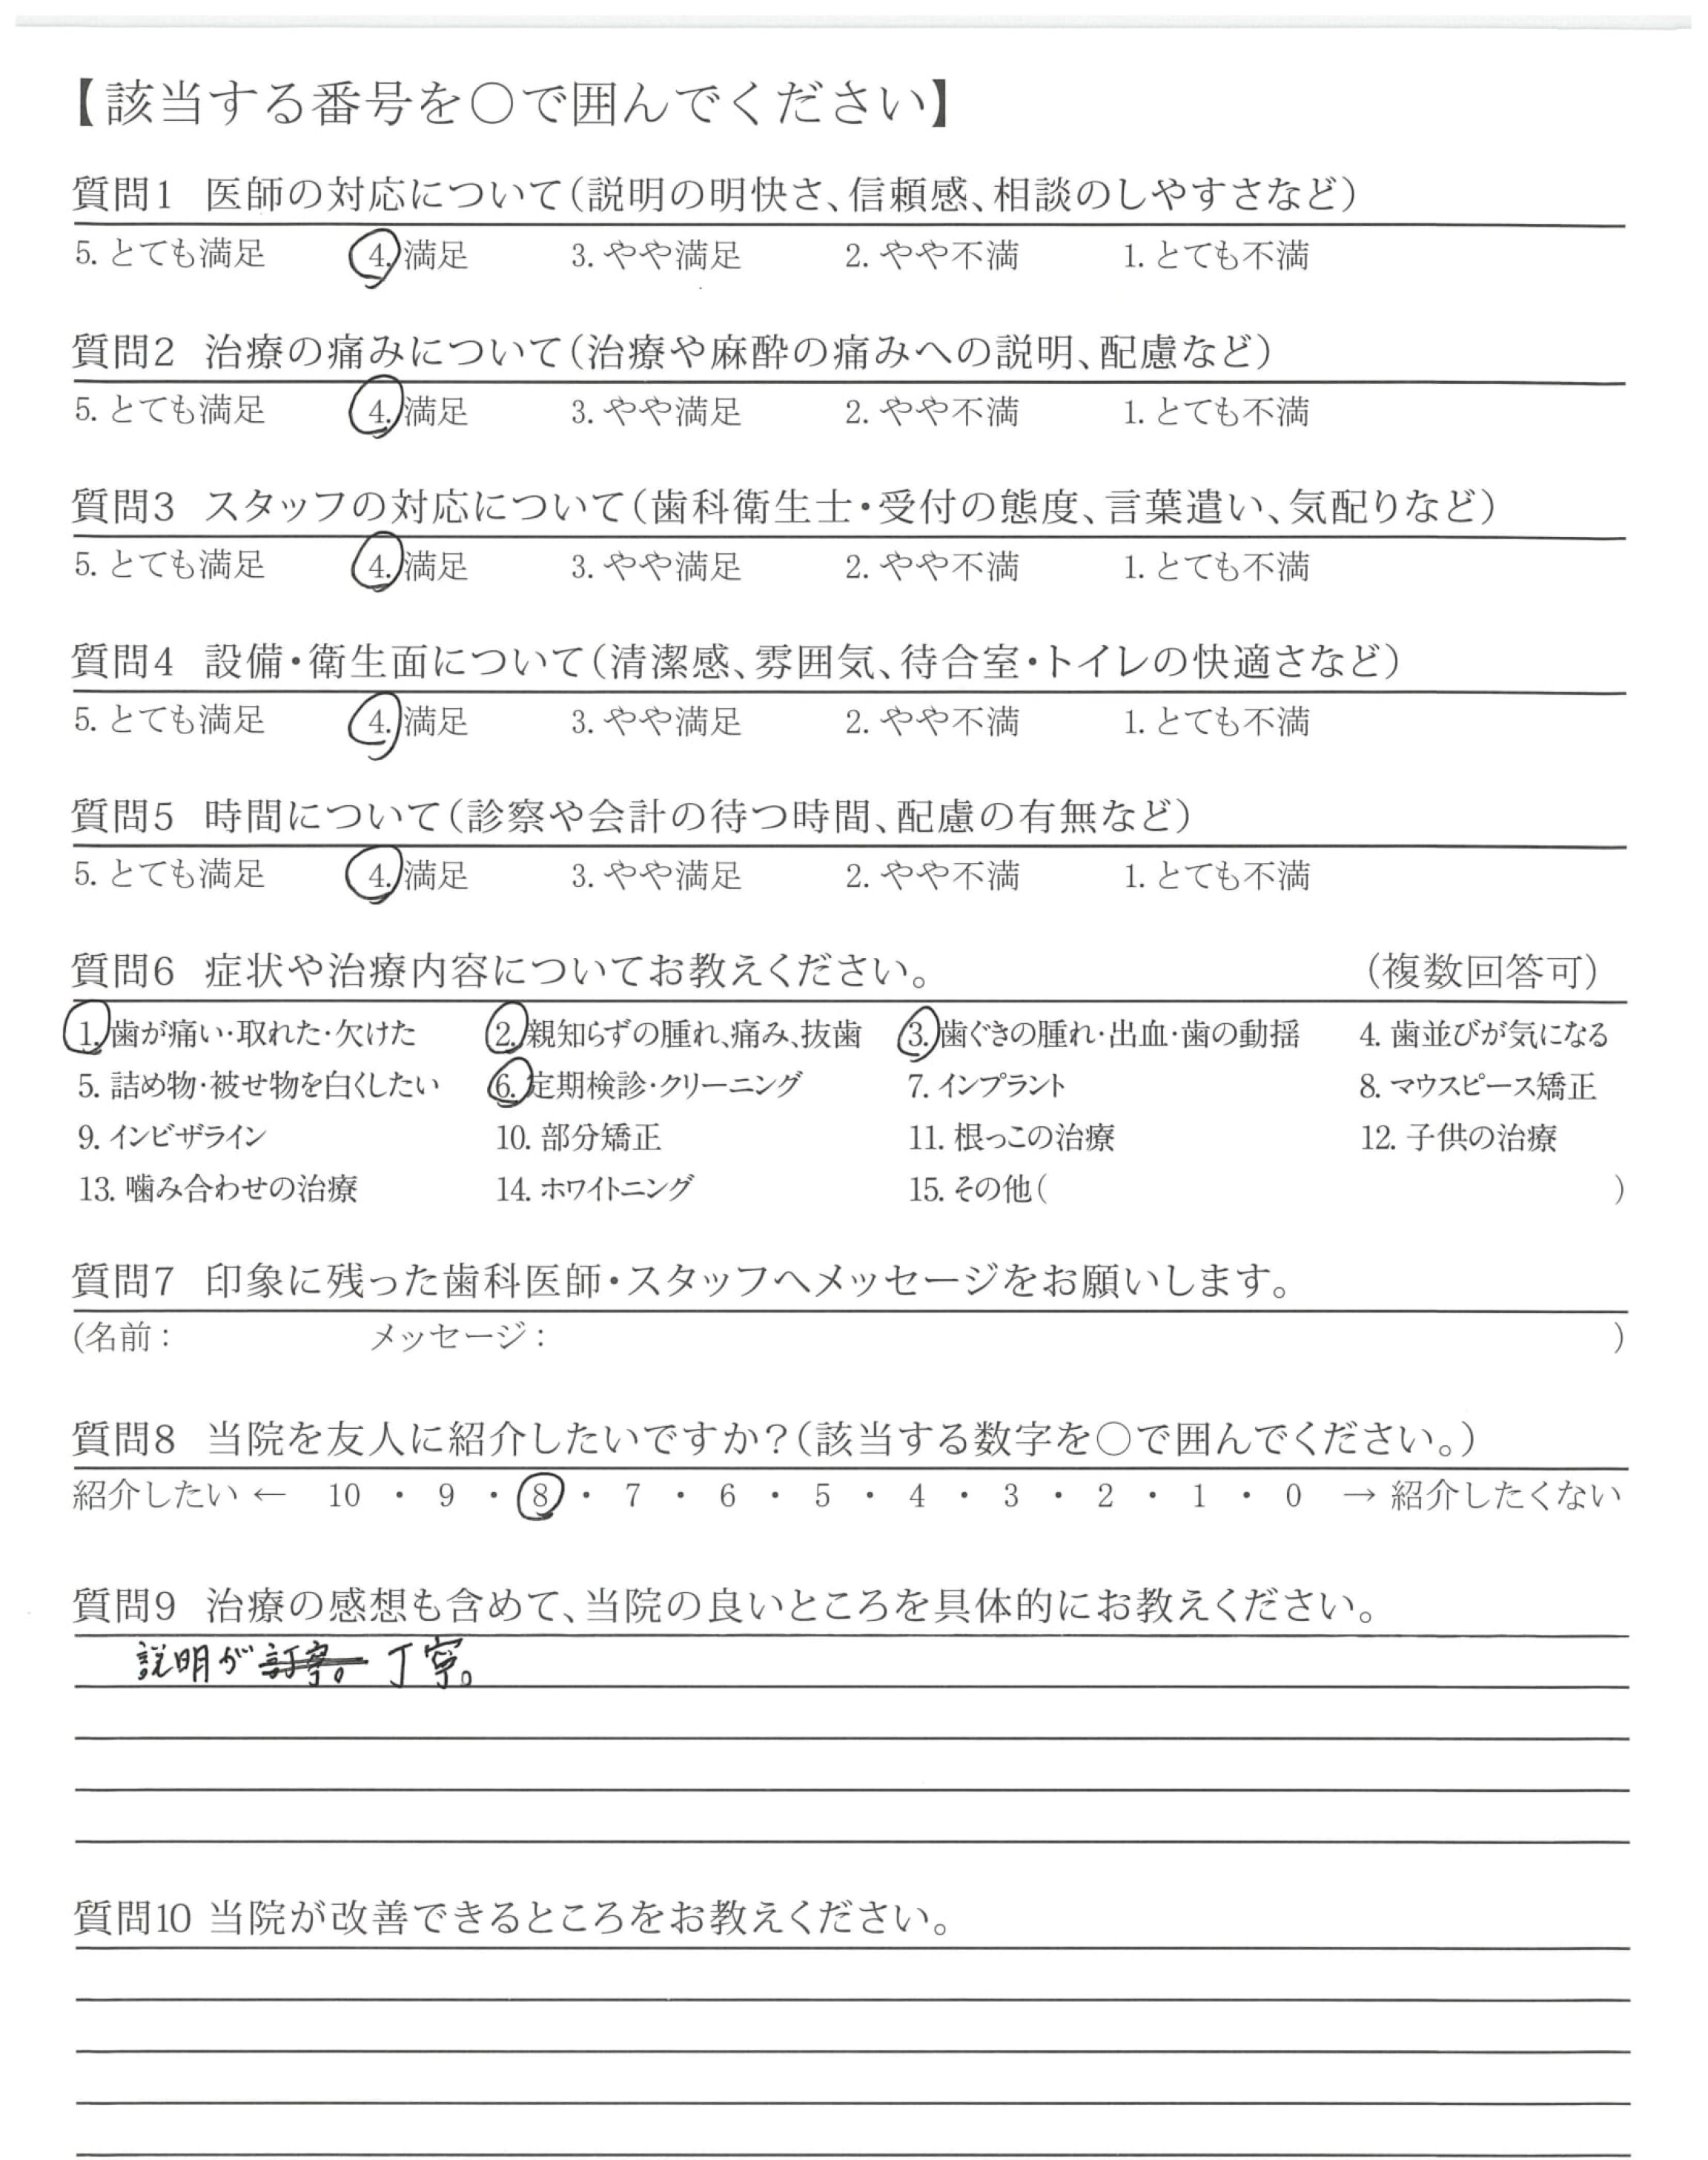 【該当する番号を○で囲んでください】
質問1 医師の対応について(説明の明快さ、信頼感、相談のしやすさなど)
5. とても満足 4. 満足 3. やや満足 2. やや不満 1. とても不満
質問2 治療の痛みについて(治療や麻酔の痛みへの説明、配慮など)
5. とても満足 4. 満足 3. やや満足 2. やや不満 1. とても不満
質問3 スタッフの対応について(歯科衛生士・受付の態度、言葉遣い、気配りなど)
5. とても満足 4. 満足 3. やや満足 2. やや不満 1. とても不満
質問4 設備・衛生面について(清潔感、雰囲気、待合室・トイレの快適さなど)
5. とても満足 4. 満足 3. やや満足 2. やや不満 1. とても不満
質問5 時間について(診察や会計の待つ時間、配慮の有無など)
5. とても満足 4. 満足 3. やや満足 2. やや不満 1. とても不満
質問6 症状や治療内容についてお教えください。 (複数回答可)
1. 歯が痛い・取れた・欠けた 2. 親知らずの腫れ、痛み、抜歯 3. 歯ぐきの腫れ・出血・歯の動揺 4. 歯並びが気になる
5. 詰め物・被せ物を白くしたい 6. 定期検診・クリーニング 7. インプラント 8. マウスピース矯正
9. インビザライン 10. 部分矯正 11. 根っこの治療 12. 子供の治療
13. 噛み合わせの治療 14. ホワイトニング 15. その他( )
質問7 印象に残った歯科医師・スタッフへメッセージをお願いします。
(名前: メッセージ: )
質問8 当院を友人に紹介したいですか?(該当する数字を○で囲んでください。)
紹介したい ← 10 ・ 9 ・ 8 ・ 7 ・ 6 ・ 5 ・ 4 ・ 3 ・ 2 ・ 1 ・ 0 → 紹介したくない
質問9 治療の感想も含めて、当院の良いところを具体的にお教えください。
説明が 訂寧。 丁寧。
質問10 当院が改善できるところをお教えください。